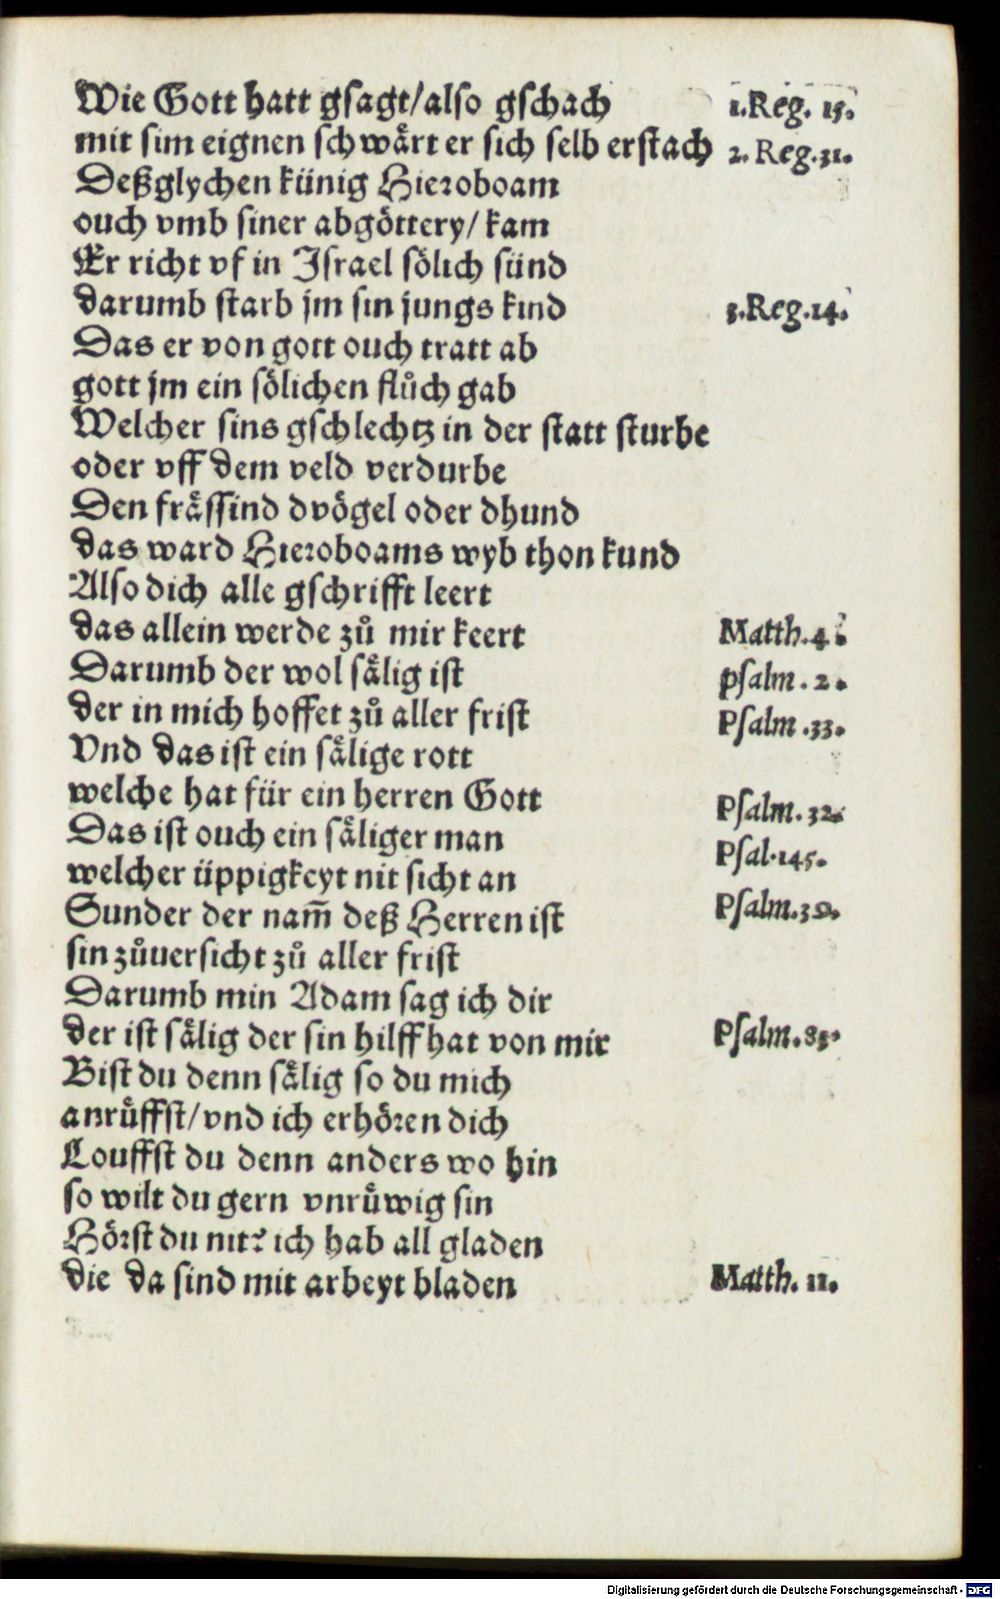 Wie Gott hatt gsagt/also gschach 1.Reg. 15.
mit sim eignen schwårt er sich selb erstach 2. Reg.31.
Deßglychen künig Hieroboam
ouch vmb siner abgöttery/ kam
Er richt vf in Israel sölich sünd
darumb starb jm sin jungs kind 3.Reg.14.
Das er von gott ouch tratt ab
gott jm ein sölichen flůch gab
Welcher sins gschlechtz in der statt sturbe
oder vff dem veld verdurbe
Den frässind dvögel oder dhund
das ward Hieroboams wyb thon kund
Also dich alle gschrifft leert
das allein werde zů mir keert Matth.4.
Darumb der wol sälig ist psalm. 2.
der in mich hoffet zů aller frist Psalm.33.
Vnd das ist ein sälige rott
welche hat für ein herren Gott Psalm. 32.
Das ist ouch ein säliger man Psal.145.
welcher üppigkeyt nit sicht an
Sunder der nam̄ deß Herren ist Psalm.39.
sin zůuersicht zů aller frist
Darumb min Adam sag ich dir
der ist sälig der sin hilff hat von mir Psalm.83.
Bist du denn sälig so du mich
anrüffst/vnd ich erhören dich
Louffst du denn anders wo hin
so wilt du gern vnrüwig sin
Hörst du nit? ich hab all gladen
die da sind mit arbeyt bladen Matth. 11.
Digitalisierung gefördert durch die Deutsche Forschungsgemeinschaft - DFG